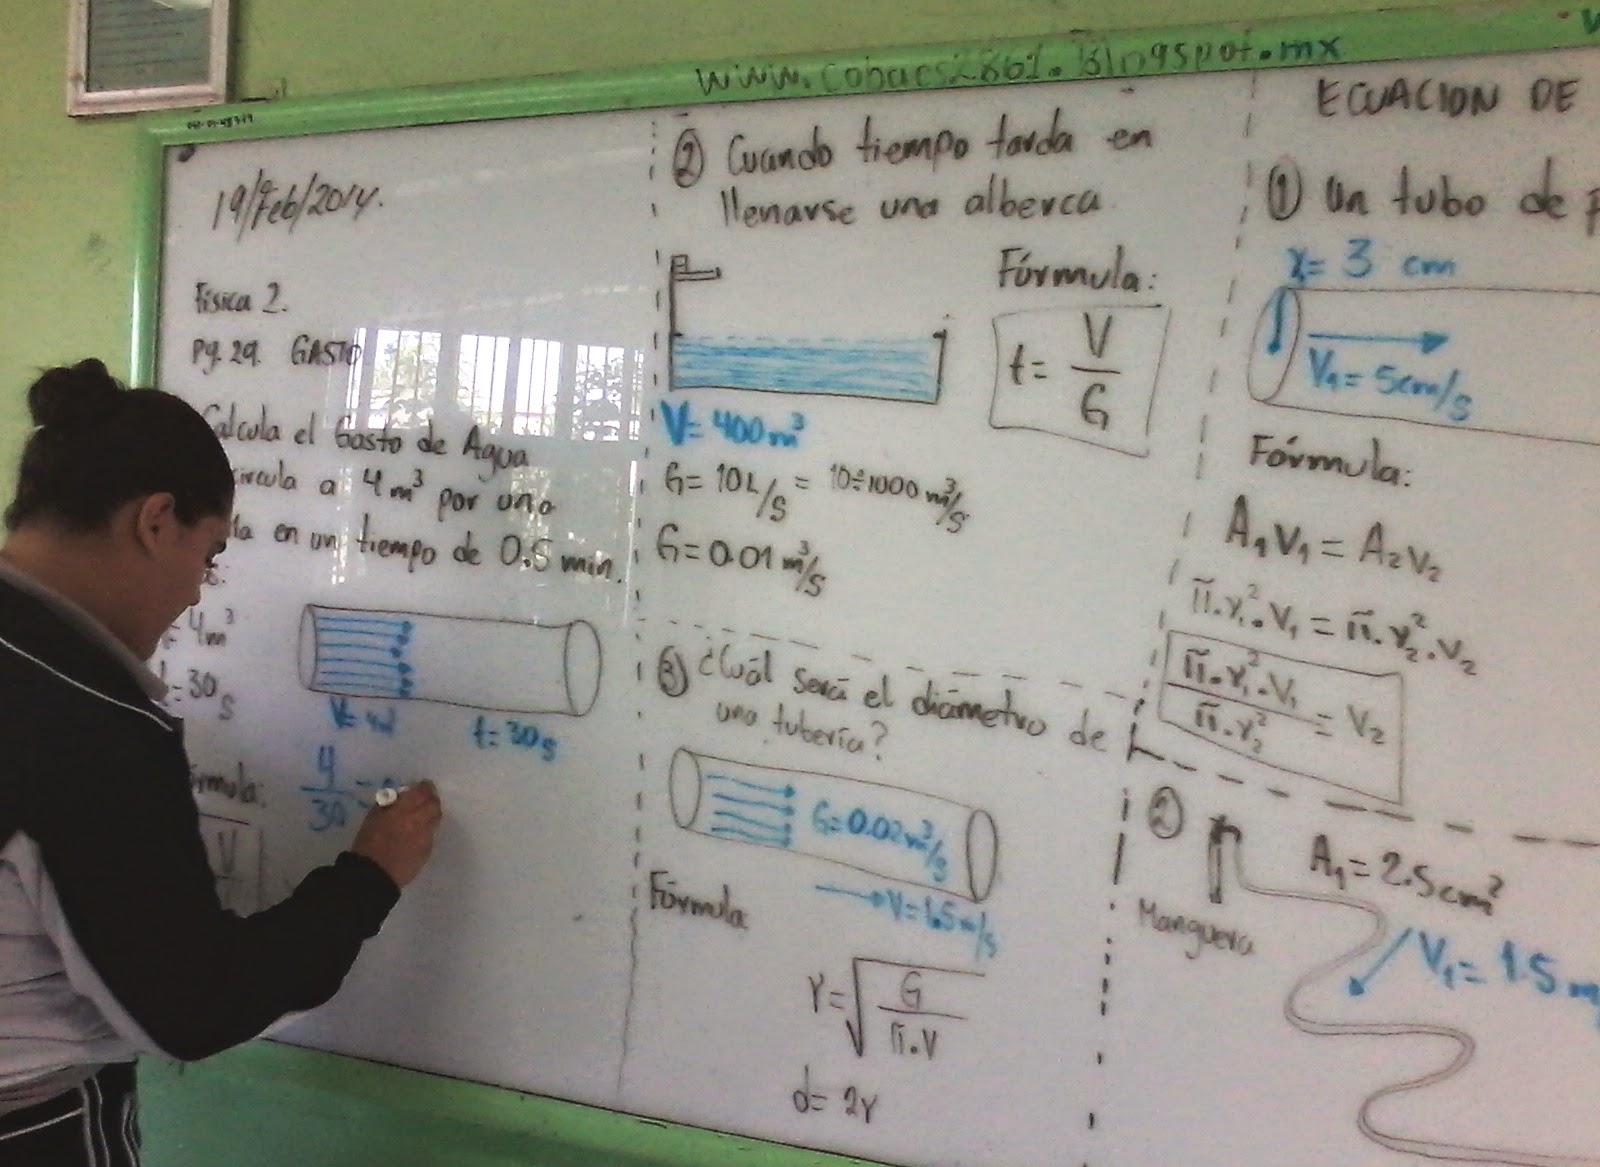 www.cobacs2861.Blogspot.mx
19/Feb/2014.
Física 2.
Pg. 29. GASTO
Calcula el Gasto de Agua
circula a 4 m³ por una
en un tiempo de 0.5 min.
4m³
t=30s
V=4m³
t=30s
4/30 =
V
② Cuando tiempo tarda en
llenarse una alberca
Fórmula:
t= V/G
V=400m³
G=10L/s = 10÷1000 m³/s
G=0.01 m³/s
③ ¿Cuál será el diámetro de
una tubería?
G=0.02m³/s
V=1.5m/s
Fórmula
r=√(G/π.V)
d=2r
ECUACION DE
① Un tubo de
r=3 cm
V₁=5cm/s
Fórmula:
A₁V₁=A₂V₂
π.r₁².V₁=π.r₂².V₂
π.r₁².V₁/π.r₂²=V₂
②
A₁=2.5cm²
Manguera
V₁=1.5 m